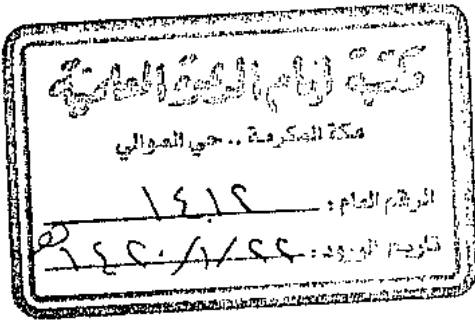 مكتبة إمام الدعوة العلمية
مكة المكرمة .. حي العوالي
الرقم العام : ١٤١٢
تاريخ الورود : ١٤٢٠/١/٢٢ هـ